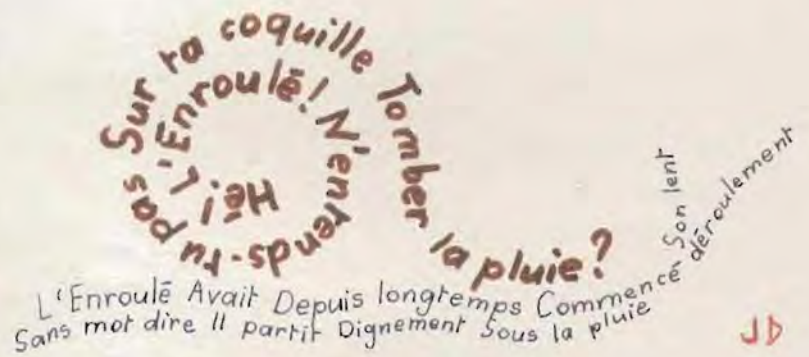 Hé! L'Enroulé! N'entends-tu pas Sur ta coquille Tomber la pluie?
L'Enroulé Avait Depuis longtemps Commencé Son lent déroulement
Sans mot dire Il partit Dignement Sous la pluie
JD